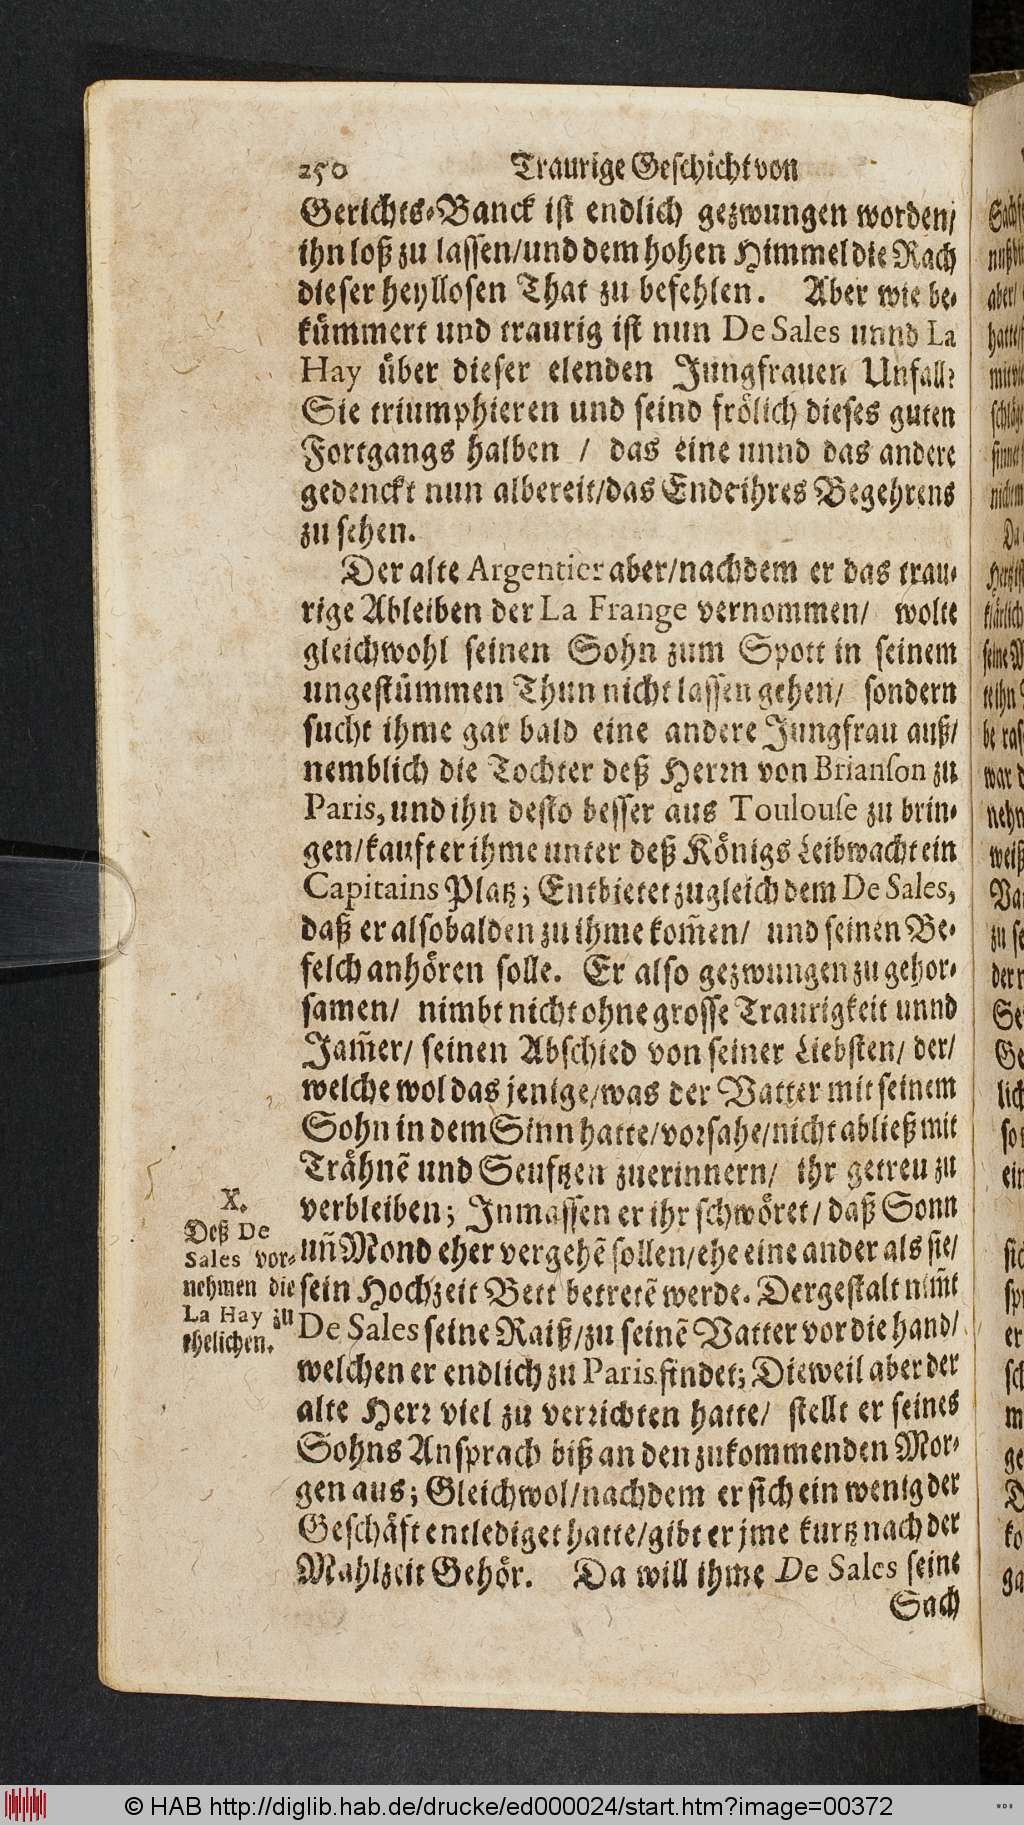 250 Traurige Geschicht von
Gerichts-Banck ist endlich gezwungen worden/
ihn loß zu lassen/und dem hohen Himmel die Rach
dieser heyllosen That zu befehlen. Aber wie be-
kümmert und traurig ist nun De Sales unnd La
Hay über dieser elenden Jungfrauen Unfall?
Sie triumphieren und seind frölich dieses guten
Fortgangs halben / das eine unnd das andere
gedenckt nun albereit/das Ende ihres Begehrens
zu sehen.
Der alte Argentier aber/nachdem er das trau-
rige Ableiben der La Frange vernommen/ wolte
gleichwohl seinen Sohn zum Spott in seinem
ungestümmen Thun nicht lassen gehen/ sondern
sucht ihme gar bald eine andere Jungfrau auß/
nemblich die Tochter deß Herrn von Brianson zu
Paris, und ihn desto besser aus Toulouse zu brin-
gen/kauft er ihme unter deß Königs Leibwacht ein
Capitains Platz; Entbietet zugleich dem De Sales,
daß er alsobalden zu ihme kom̃en/ und seinen Be-
felch anhören solle. Er also gezwungen zu gehor-
samen/ nimbt nicht ohne grosse Traurigkeit unnd
Jam̃er/ seinen Abschied von seiner Liebsten/ der/
welche wol das jenige/was der Vatter mit seinem
Sohn in dem Sinn hatte/vorsahe/nicht abließ mit
Trähnẽ und Seuftzen zuerinnern/ ihr getreu zu
verbleiben; Inmassen er ihr schwöret/ daß Sonn
uñ Mond eher vergehẽ sollen/ehe eine ander als sie/
sein Hochzeit Bett betretẽ werde. Dergestalt nim̃t
De Sales seine Raiß/zu seinẽ Vatter vor die hand/
welchen er endlich zu Paris findet; Dieweil aber der
alte Herr viel zu verrichten hatte/ stellt er seines
Sohns Ansprach biß an den zukommenden Mor-
gen aus; Gleichwol/nachdem er sich ein wenig der
Geschäft entlediget hatte/gibt er jme kurtz nach der
Mahlzeit Gehör. Da will ihme De Sales seine
Sach
X.
Deß De
Sales vor-
nehmen die
La Hay zu
ehelichen.
© HAB http://diglib.hab.de/drucke/ed000024/start.htm?image=00372